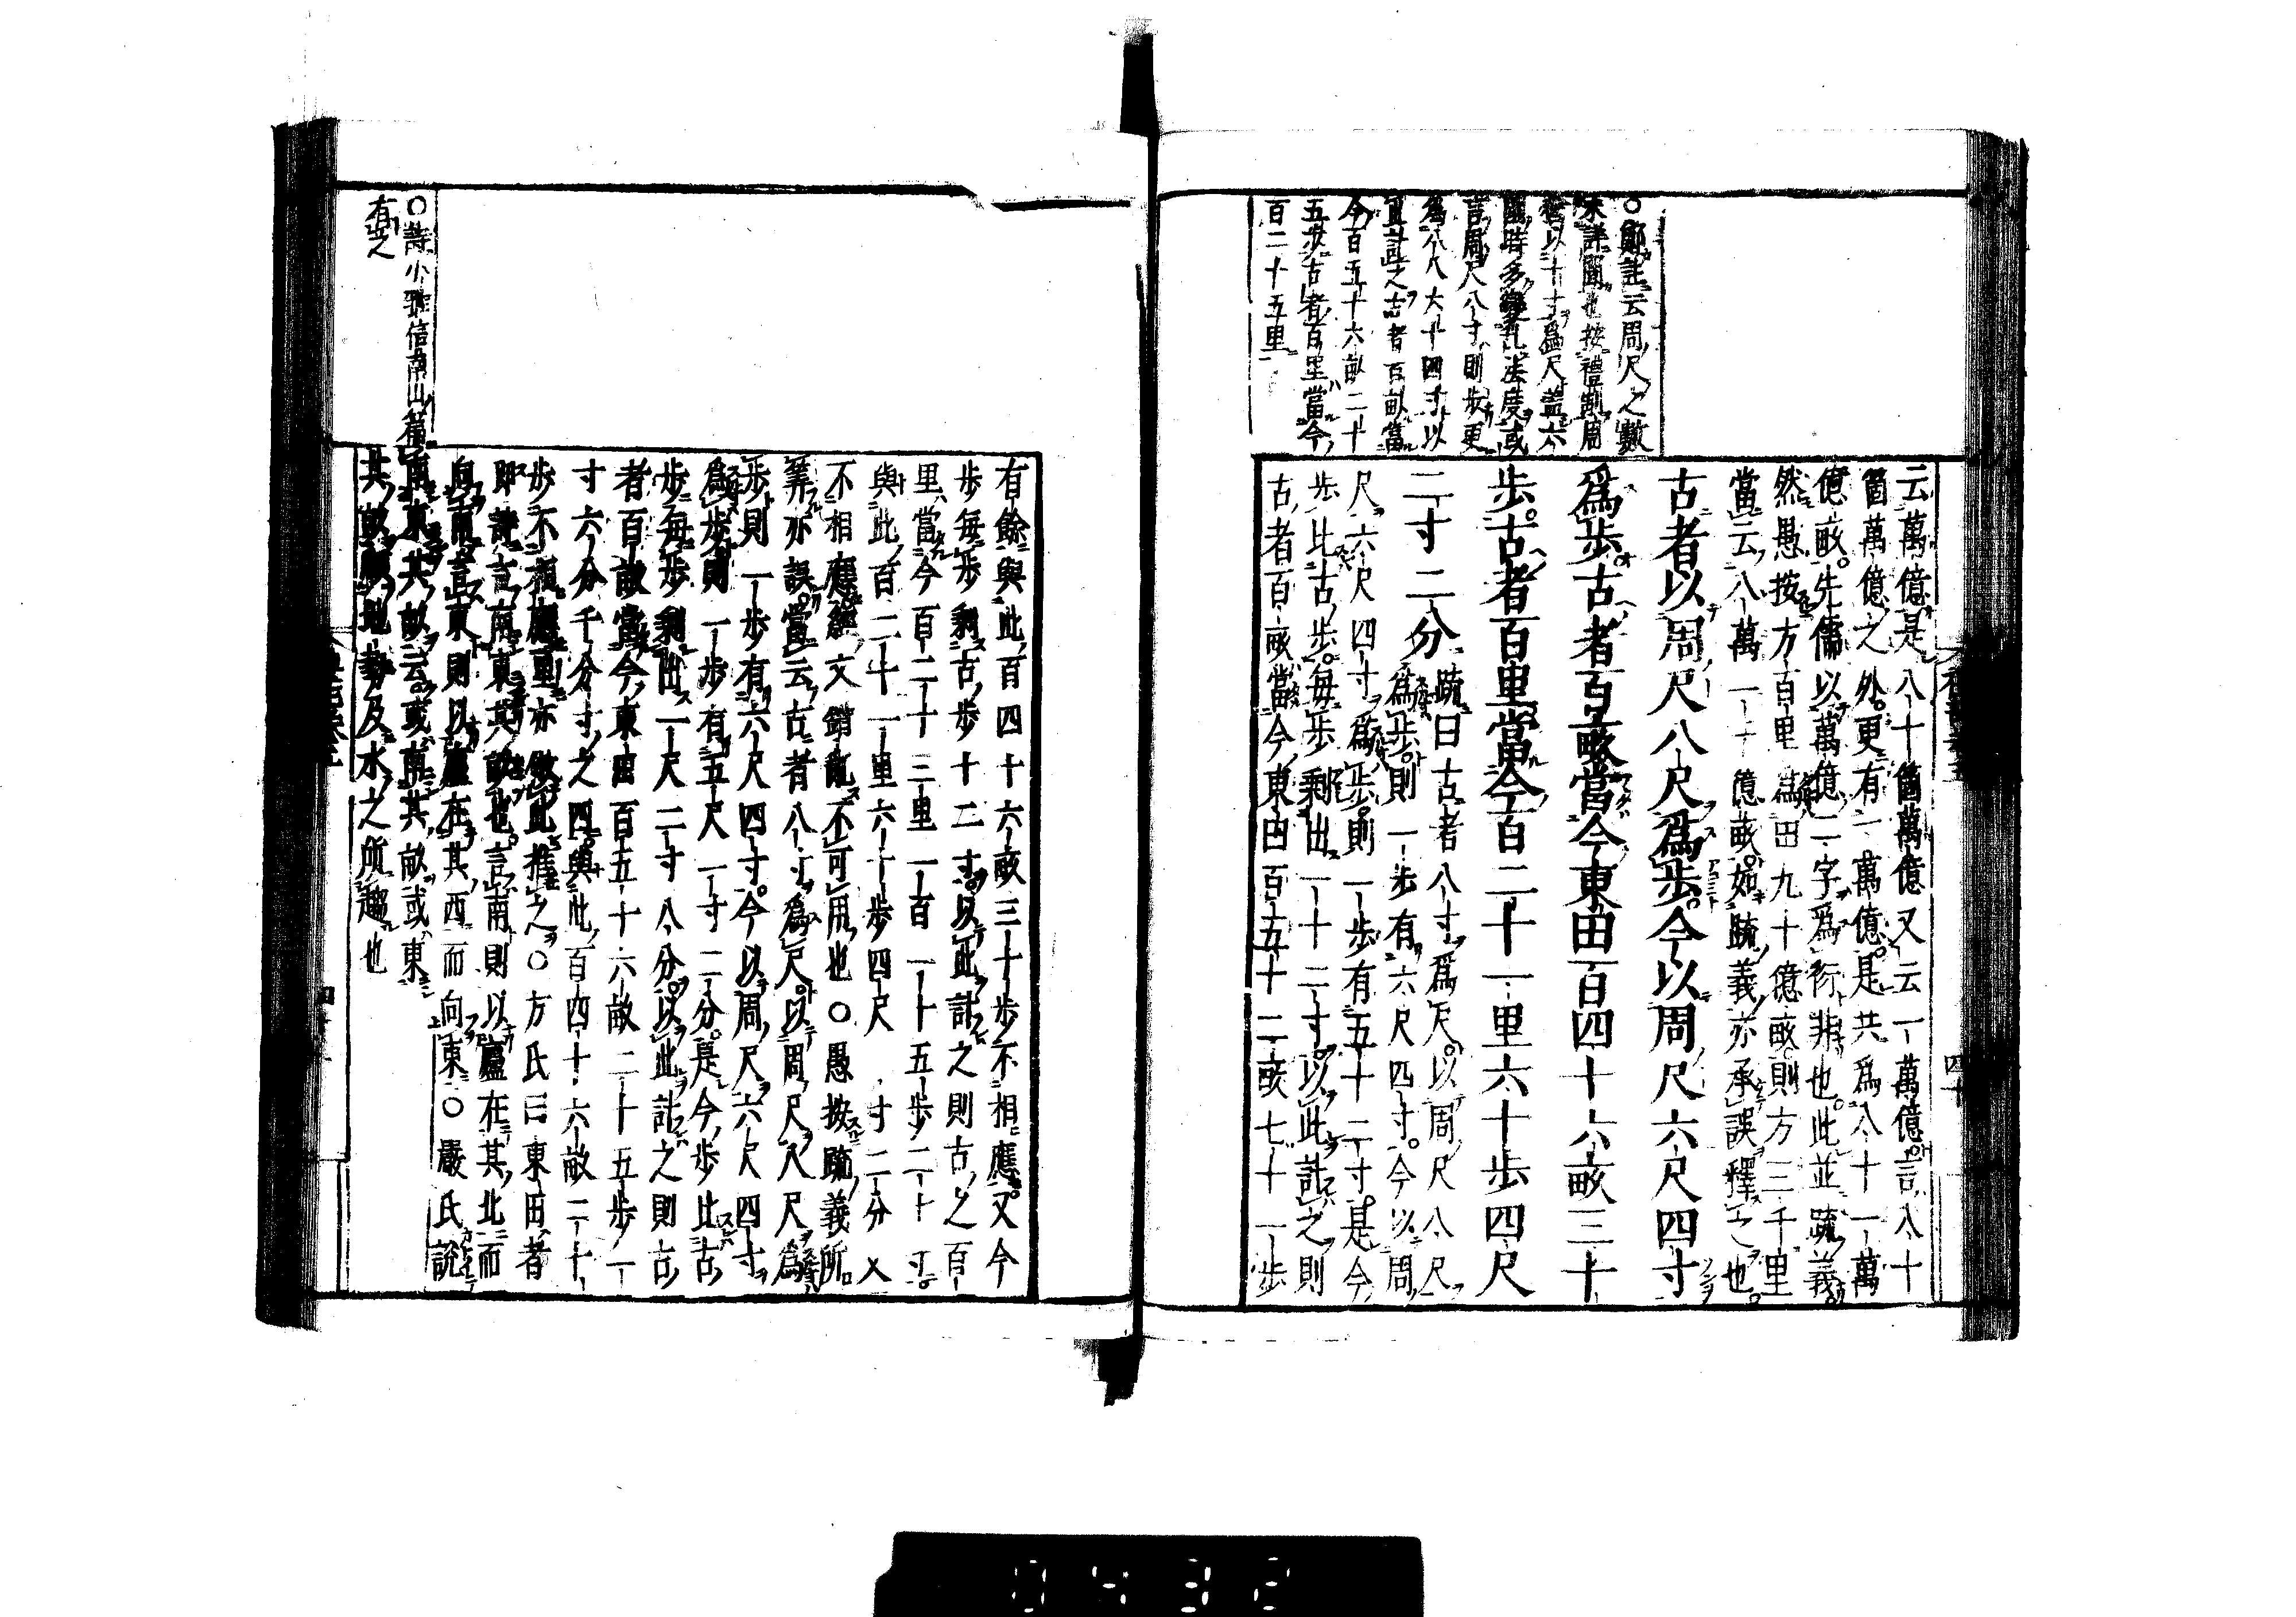 ○鄭註云周尺之數
未詳聞也按禮制周
猶以十寸爲尺蓋六
國時多變亂法度或
言周尺八寸則步更
爲八八六十四寸以
此計之古者百畝當
今百五十六畝二十
五步古者百里當今
百二十五里
云萬億是八十箇萬億又云一萬億言八十
箇萬億之外更有一萬億是共爲八十一萬
億畝先儒以萬億二字爲衍非也此並疏義
然愚按方百里爲田九十億畝則方三千里
當云八萬一千億畝如疏義亦承誤釋之也
古者以周尺八尺爲步今以周尺六尺四寸
爲步古者百畝當今東田百四十六畝三十
步古者百里當今百二十一里六十步四尺
二寸二分
疏曰古者八寸爲尺以周尺八尺
爲步則一步有六尺四寸今以周
尺六尺四寸爲步則一步有五十二寸是今
步比古步每步剩出一十二寸以此計之則
古者百畝當今東田百五十二畝七十一步
有餘與此百四十六畝三十步不相應又今
步每步剩古步十二寸以此計之則古之百
里當今百二十三里一百一十五步二十寸
與此百二十一里六十步四尺 寸二分又
不相應經文錯亂不可用也○愚按疏義所
筭亦誤當云古者八寸爲尺以周尺八尺爲
步則一步有六尺四寸今以周尺六尺四寸
爲步則一步有五尺一寸二分是今步比古
步每步剩出一尺二寸八分以此計之則古
者百畝當今東田百五十六畝二十五步一
寸六分千分寸之四與此百四十六畝三十
步不相應里亦倣此推之○方氏曰東田者
即詩言南東其畝也言南則以廬在其北而
向南言東則以廬在其西而向東○嚴氏說
南東其畝云或南其畝或東
其畝順地勢及水之所趨也
○詩小雅信南山篇
有此
四十